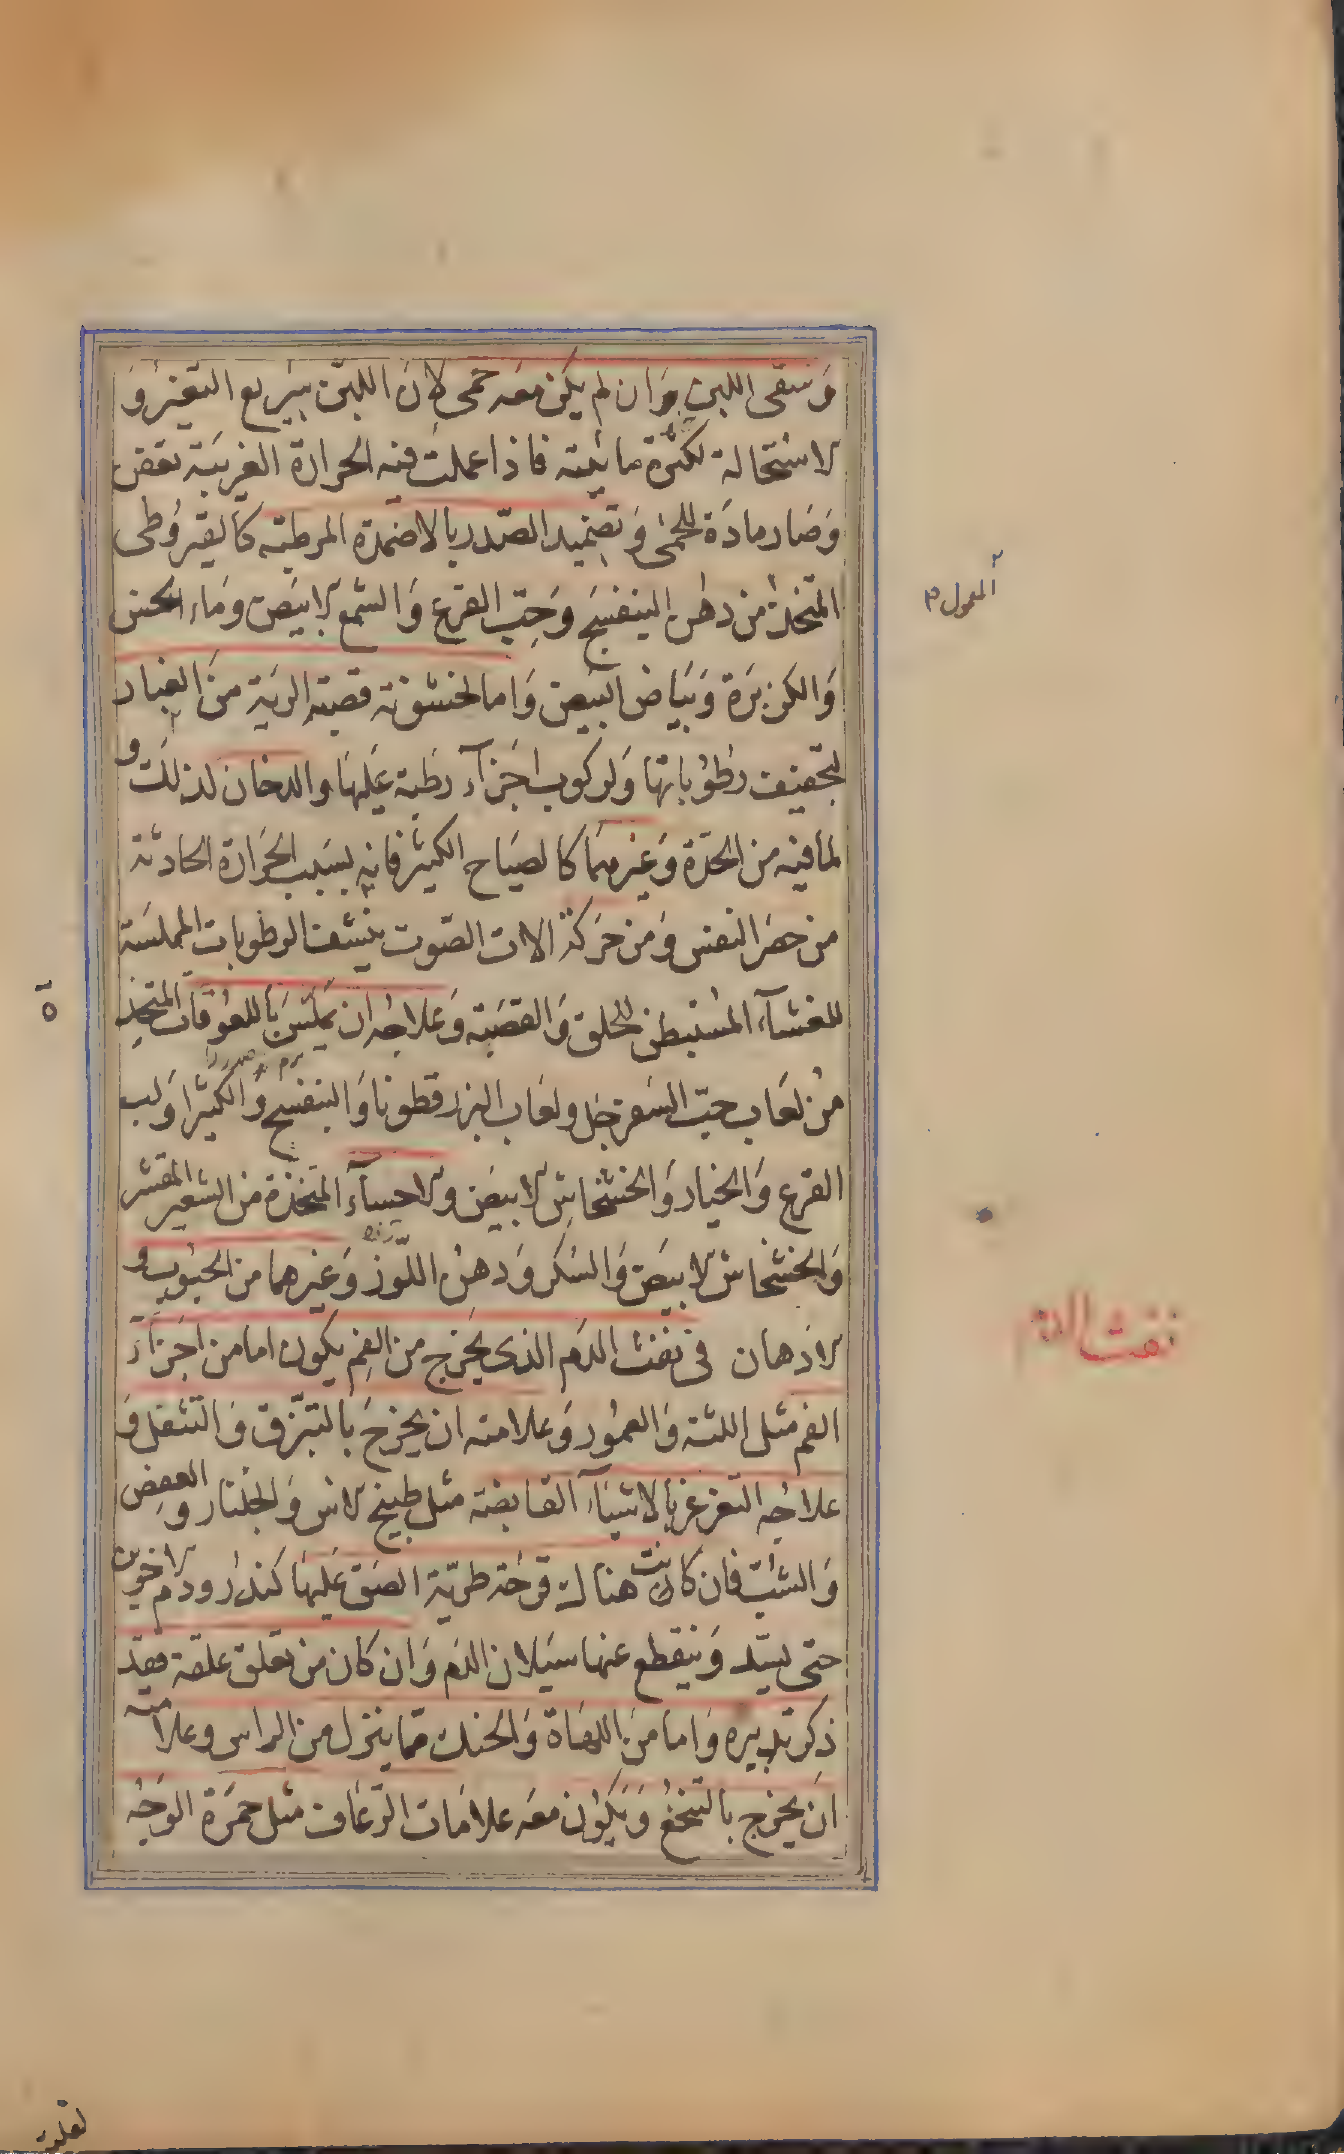 وسقى اللبن وان لم يكن معه حمى لان اللبن سريع التغير و
الاستحالة لكثرة مائيته فاذا عملت فيه الحرارة الغريبة تعفن
وصار مادة للحمى وتضميد الصدر بالاضمدة المرطبة كالقيروطى
المتخذ من دهن البنفسج وحب القرع والشمع الابيض وماء الخس
والكزبرة وبياض البيض واما لخشونة قصبة الرية من الغبار
لتجفيف رطوباتها ولركوب اجزآء رطبة عليها والدخان لذلك و
لما فيه من الحدة وغيرهما كالصياح الكثير فانه بسبب الحرارة الحادثة
من حصر النفس ومن حركة الات الصوت ينشف الرطوبات المملسة
للغشآء المستبطن للحلق والقصبة وعلاجه ان يملس باللعوقات المتخذ
من لعاب حب السفرجل ولعاب البزرقطونا والبنفسج والكثيرا ولب
القرع والخيار والخشخاش الابيض والاحسآء المتخذة من الشعير المقشر
والخشخاش الابيض والسكر ودهن اللوز وغيرهما من الحبوب و
الادهان فى نفث الدم الذى يخرج من الفم يكون اما من اجزآء
الفم مثل اللثة والعمور وعلامته ان يخرج بالتبزق والتثفل و
علاجه التغرغر بالاشيآء القابضة مثل طبيخ الاس والجلنار والعفص
والشب فان كانت هناك قرحة طرية الصق عليها كندر ودم الاخوين
حتى يسد وينقطع عنها سيلان الدم وان كان من تعلق علقة فقد
ذكر تدبيره واما من اللهاة والحنك مما ينزل من الراس وعلامته
ان يخرج بالتنخع ويكون معه علامات الرعاف مثل حمرة الوجه
المعمول م
نفث الدم